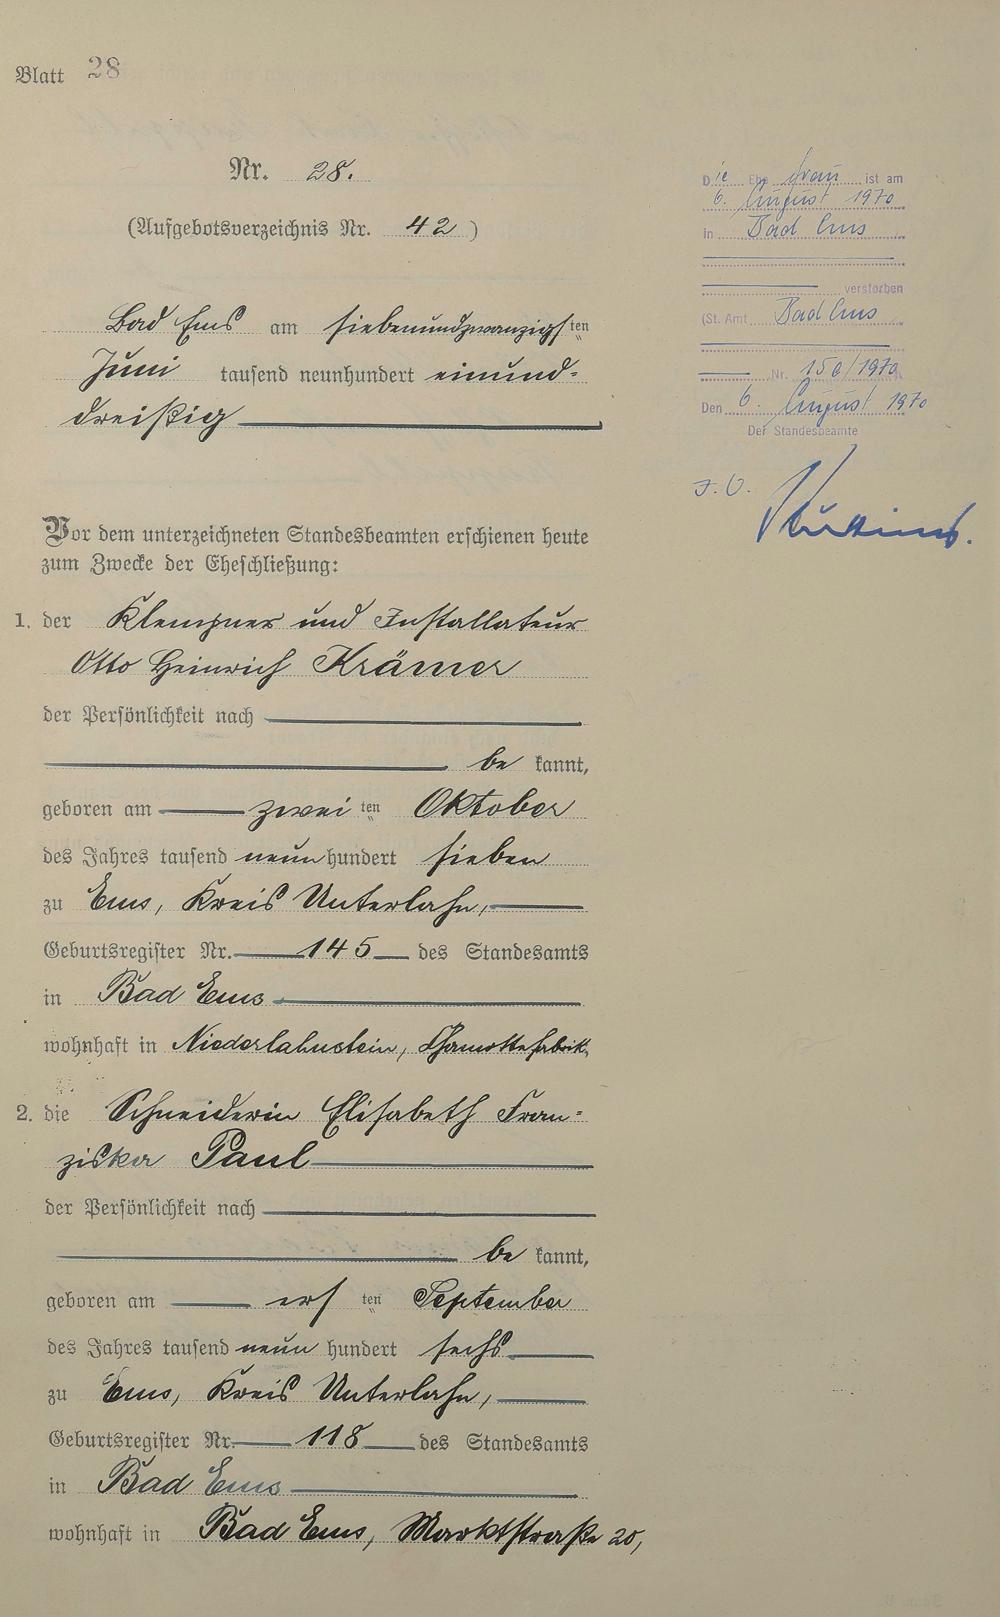 Blatt 28
Nr. 28.
(Aufgebotsverzeichnis Nr. 42)
Bad Ems am siebenundzwanzigsten
Juni tausend neunhundert einund=
dreißig
Vor dem unterzeichneten Standesbeamten erschienen heute
zum Zwecke der Eheschließung:
1. der Klempner und Installateur
Otto Heinrich Krämer
der Persönlichkeit nach
be kannt,
geboren am zwei ten Oktober
des Jahres tausend neun hundert sieben
zu Ems, Kreis Unterlahn,
Geburtsregister Nr. 145 des Standesamts
in Bad Ems
wohnhaft in Niederlahnstein, Chamottefabrik,
2. die Schneiderin Elisabeth Fran=
ziska Paul
der Persönlichkeit nach
be kannt,
geboren am ers ten September
des Jahres tausend neun hundert sechs
zu Ems, Kreis Unterlahn,
Geburtsregister Nr. 118 des Standesamts
in Bad Ems
wohnhaft in Bad Ems, Marktstraße 20,
Die Ehefrau ist am
6. August 1970
in Bad Ems
verstorben
(St. Amt Bad Ems
Nr. 150/1970
Den 6. August 1970
Der Standesbeamte
I. V.